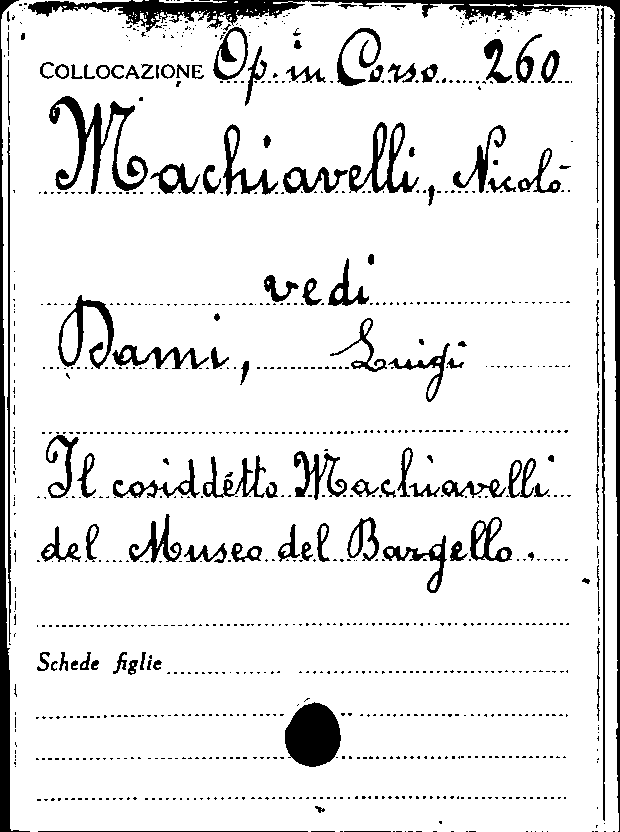 COLLOCAZIONE Op. in Corso. 260
Machiavelli, Nicolò
vedi
Dami, Luigi
Il cosiddétto Machiavelli
del Museo del Bargello.
Schede figlie